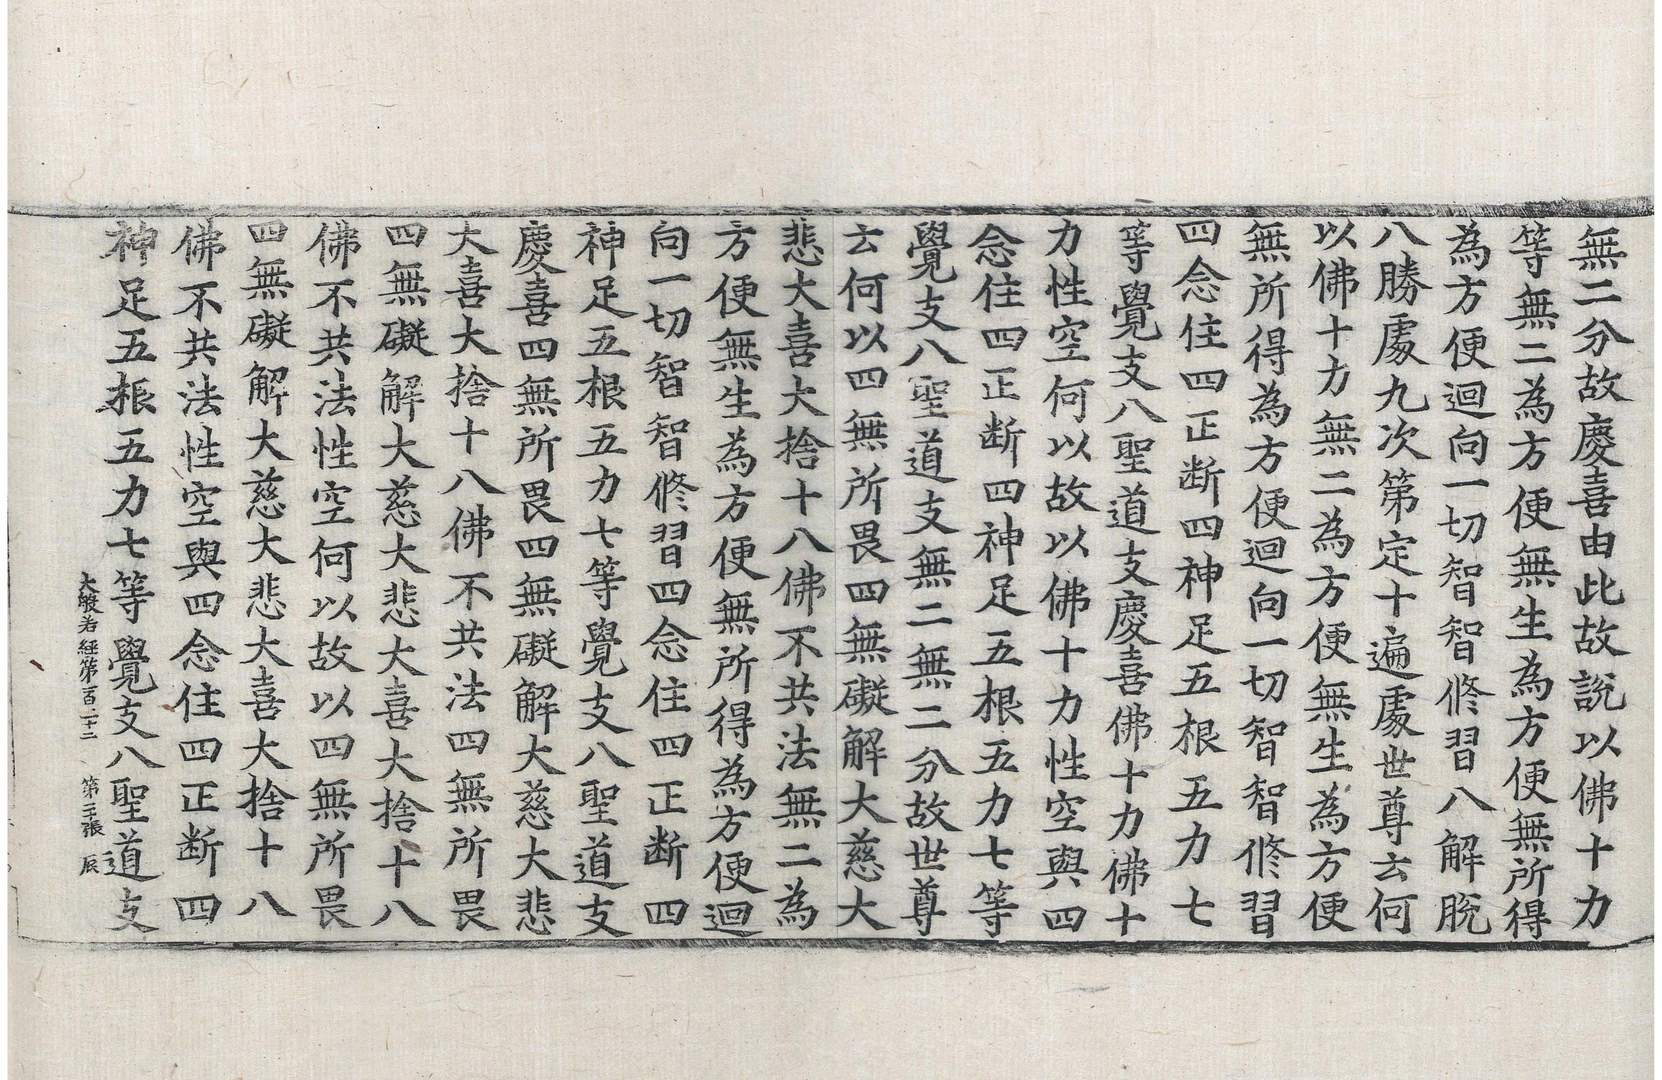 無二分故慶喜由此故說以佛十力
等無二為方便無生為方便無所得
為方便迴向一切智智修習八解脫
八勝處九次第定十遍處世尊云何
以佛十力無二為方便無生為方便
無所得為方便迴向一切智智修習
四念住四正断四神足五根五力七
等覺支八聖道支慶喜佛十力佛十
力性空何以故以佛十力性空與四
念住四正断四神足五根五力七等
覺支八聖道支無二無二分故世尊
云何以四無所畏四無礙解大慈大
悲大喜大捨十八佛不共法無二為
方便無生為方便無所得為方便迴
向一切智智修習四念住四正断四
神足五根五力七等覺支八聖道支
慶喜四無所畏四無礙解大慈大悲
大喜大捨十八佛不共法四無所畏
四無礙解大慈大悲大喜大捨十八
佛不共法性空何以故以四無所畏
四無礙解大慈大悲大喜大捨十八
佛不共法性空與四念住四正断四
神足五根五力七等覺支八聖道支
大般若經第百二十二 第三張 辰